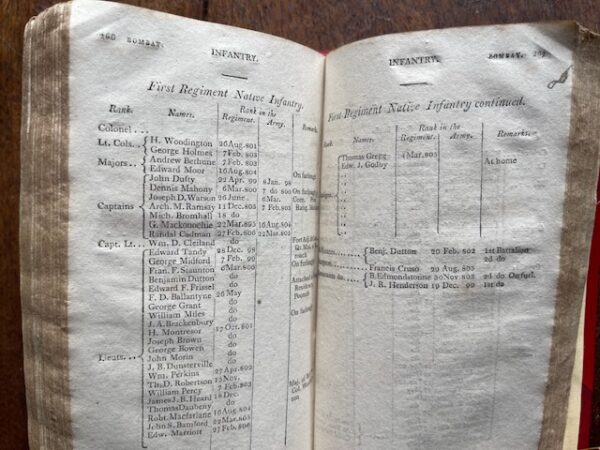 160 BOMBAY.
INFANTRY.
First Regiment Native Infantry.
Rank. Names. Rank in the Regiment. Army. Remark
Colonel...
Lt. Cols. H. Woodington 26 Aug. 801
George Holmes 7 Feb. 803
Majors.. Andrew Bethune 7 Feb. 803
Edward Moor 16 Aug. 804 On furlough
John Dufty 22 Apr. 99 8 Jan. 98
Dennis Mahony 6 Mar. 800 7 do 800 On furlough
Joseph D. Watson 26 June 6 Mar.
Captains Arch. M. Ramsay 11 Dec. 803 7 Feb. 803
Mich. Bromhall 18 do
G. Mackonochie 22 Mar. 803 16 Aug. 804
Randal Cadman 27 Feb. 806 22 Mar. 804
Capt. Lt... Wm. D. Cleiland do
Edward Tandy 28 Dec. 98
George Midford 7 Feb. 99 On furlough
Fran. F. Staunton 6 Mar. 800
Benjamin Dutton do Attached
Edward F. Frissel do
F. D. Ballantyne 26 May
George Grant do
William Miles do On furlough
J. A. Brackenbury do
H. Montresor 17 Oct. 801
Joseph Brown do
George Bowen do
Lieuts.. John Morin do
J. B. Dunsterville do
Wm. Perkins 27 Apr. 802
Th. D. Robertson 15 Nov.
William Percy 7 Feb. 803
James J. B. Heard 18 Dec.
Thomas Daubeny do
Robt. Macfarlane 16 Aug. 804
John S. Bamford 22 Mar. 805
Edw. Marriott 27 Feb. 806
INFANTRY. BOMBAY.
First Regiment Native Infantry continued.
Names. Rank in the Regiment. Army. Remarks.
Thomas Gregg Mar. 805
Edw. J. Godley At home
Benj. Dutton 20 Feb. 802 1st Battalion
2d do.
Francis Cruso 29 Aug. 805
B. Edmondstonine 30 Nov. 802 2d do. On furl.
J. R. Henderson 19 Dec. 99 1st do